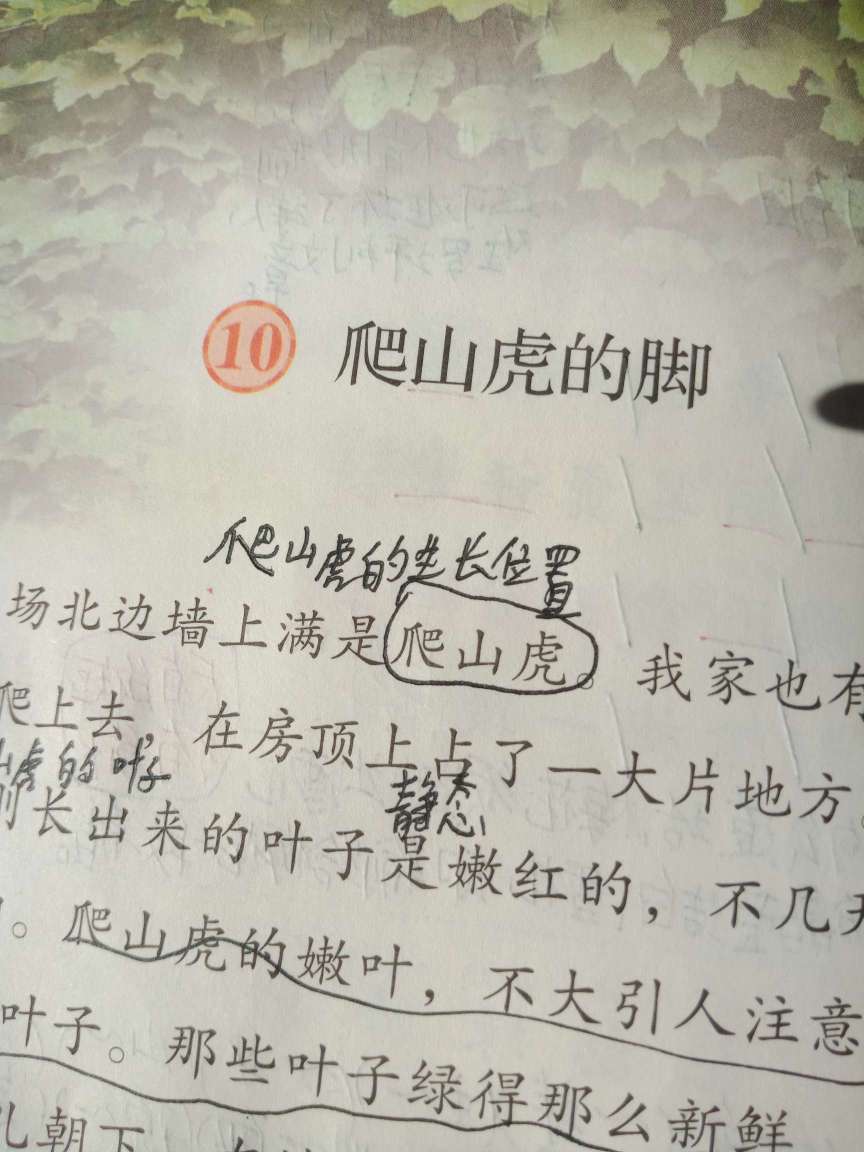 10 爬山虎的脚
爬山虎的生长位置
场北边墙上满是爬山虎。我家也有
爬上去，在房顶上占了一大片地方。
虎的叶子 静态
长出来的叶子是嫩红的，不几天
。爬山虎的嫩叶，不大引人注意
叶子。那些叶子绿得那么新鲜
朝下